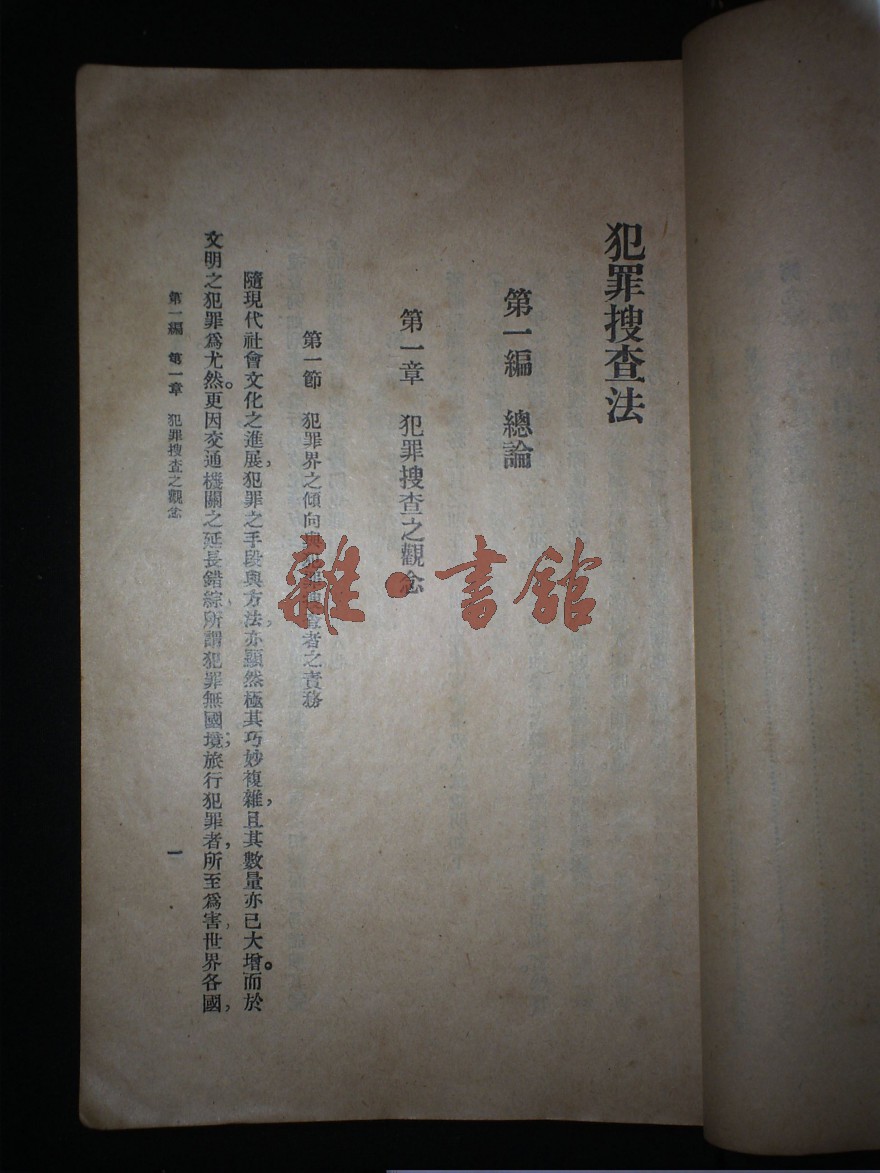 犯罪搜查法
第一編　總論
第一章　犯罪搜查之觀念
第一節　犯罪界之傾向與犯罪搜查者之責務
隨現代社會文化之進展，犯罪之手段與方法，亦顯然極其巧妙複雜，且其數量亦已大增。而於
文明之犯罪爲尤然。更因交通機關之延長錯綜，所謂犯罪無國境；旅行犯罪者，所至爲害，世界各國，
第一編　第一章　犯罪搜查之觀念
一
雜·書館